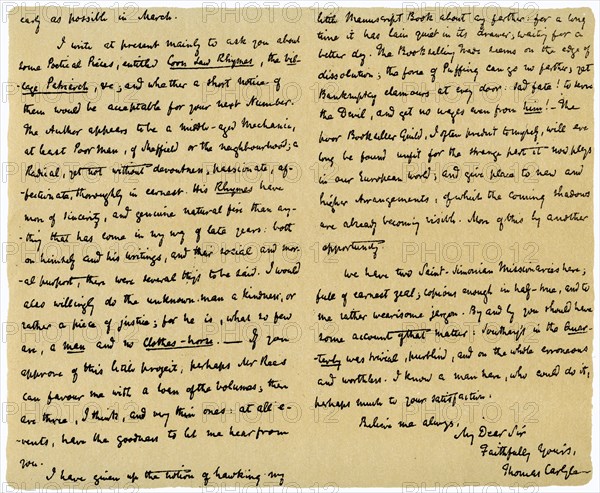 early as possible in March.
I write at present mainly to ask you about
some Poetical Pieces, entitled Corn Law Rhymes, the Vil-
lage Patriarch, &c; and whether a short notice of
them would be acceptable for your next Number.
The Author appears to be a middle-aged Mechanic,
at least Poor Man, of Sheffield or the neighbourhood; a
Radical, yet not without devoutness, passionate, af-
fectionate, thoroughly in earnest. His Rhymes have
more of sincerity, and genuine natural fire than any-
-thing that has come in my way of late years: both
on himself and his writings, and their social and mor-
-al purport, there were several things to be said. I would
also willingly do the unknown man a kindness, or
rather a piece of justice; for he is, what so few
are, a man and no Clothes-horse. — If you
approve of this little project, perhaps Mr Rees
can favour me with a loan of the volumes; there
are three, I think, and very thin ones: at all e-
-vents, have the goodness to let me hear from
you.
I have given up the notion of hawking my
little Manuscript Book about any farther: for a long
time it has lain quiet in its drawer, waiting for a
better day. The Bookselling Trade seems on the edge of
dissolution; the force of Puffing can go no farther; yet
Bankruptcy clamours at every door: sad fate! to serve
the Devil, and get no wages even from him! — The
poor Bookseller Guild, I often predict to myself, will ere
long be found unfit for the strange part it now plays
in our European world; and give place to new and
higher Arrangements, of which the coming shadows
are already becoming visible. More of this by another
opportunity.
We have two Saint-Simonian Missionaries here;
full of earnest zeal; copious enough in half-true, and to
me rather wearisome jargon. By and by you should have
some account of that matter: Southey's in the Quar-
-terly was trivial, purblind, and on the whole erroneous
and worthless. I know a man here, who could do it,
perhaps much to your satisfaction.
Believe me always,
My Dear Sir
Faithfully Yours,
Thomas Carlyle
PHOTO 12